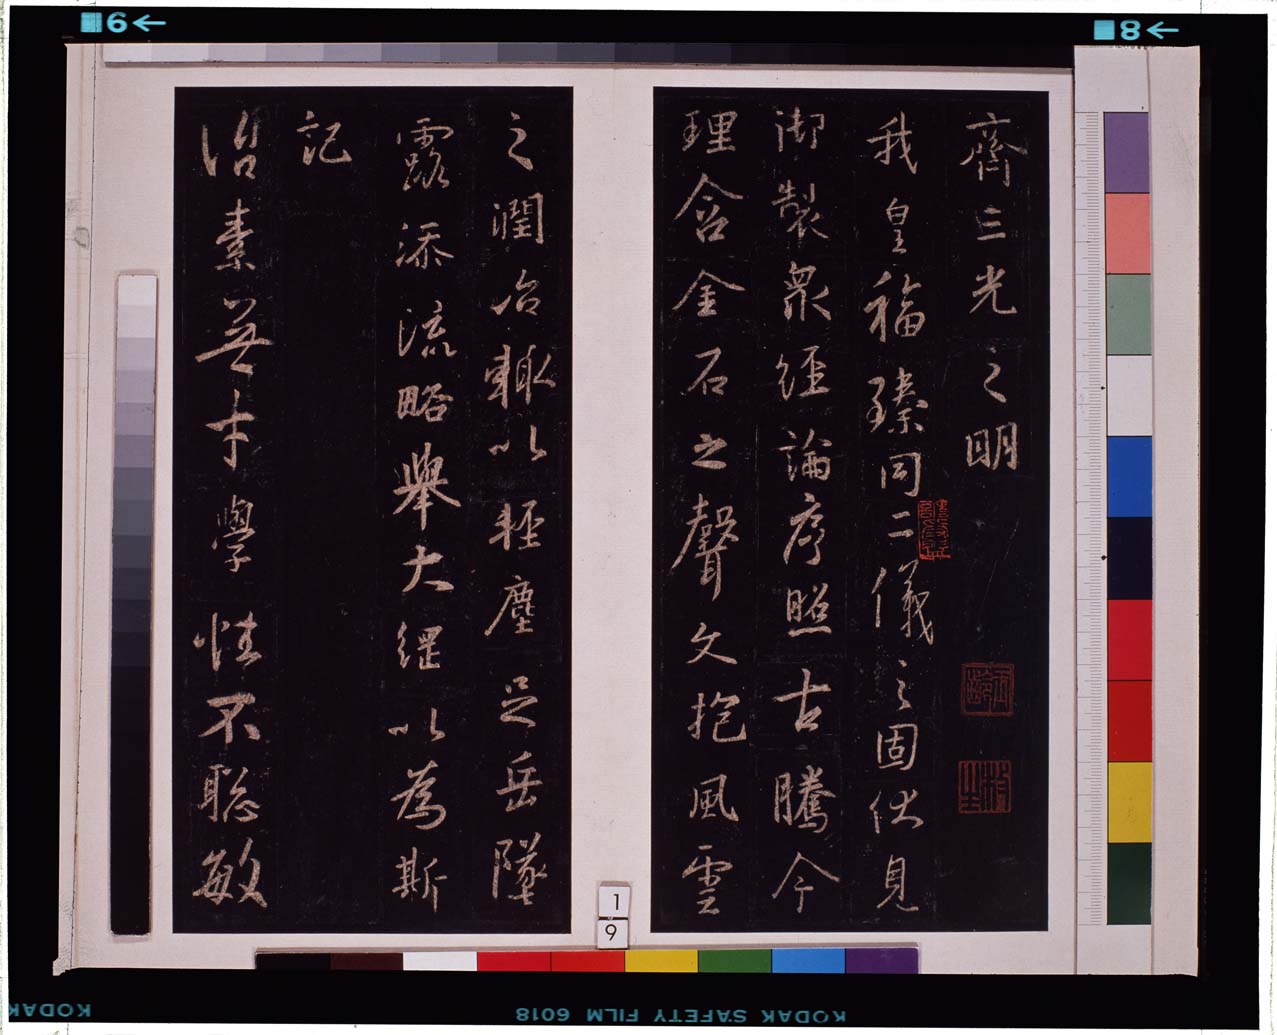 齊三光之明
我皇福臻同二儀之固伏見
御製眾經論序照古騰今
理含金石之聲文抱風雲
之潤治輙以輕塵足岳墜
露添流略舉大綱以為斯
記
治素無才學性不聰敏
9
8
1
9
KODAK
KODAK SAFETY FILM 6018